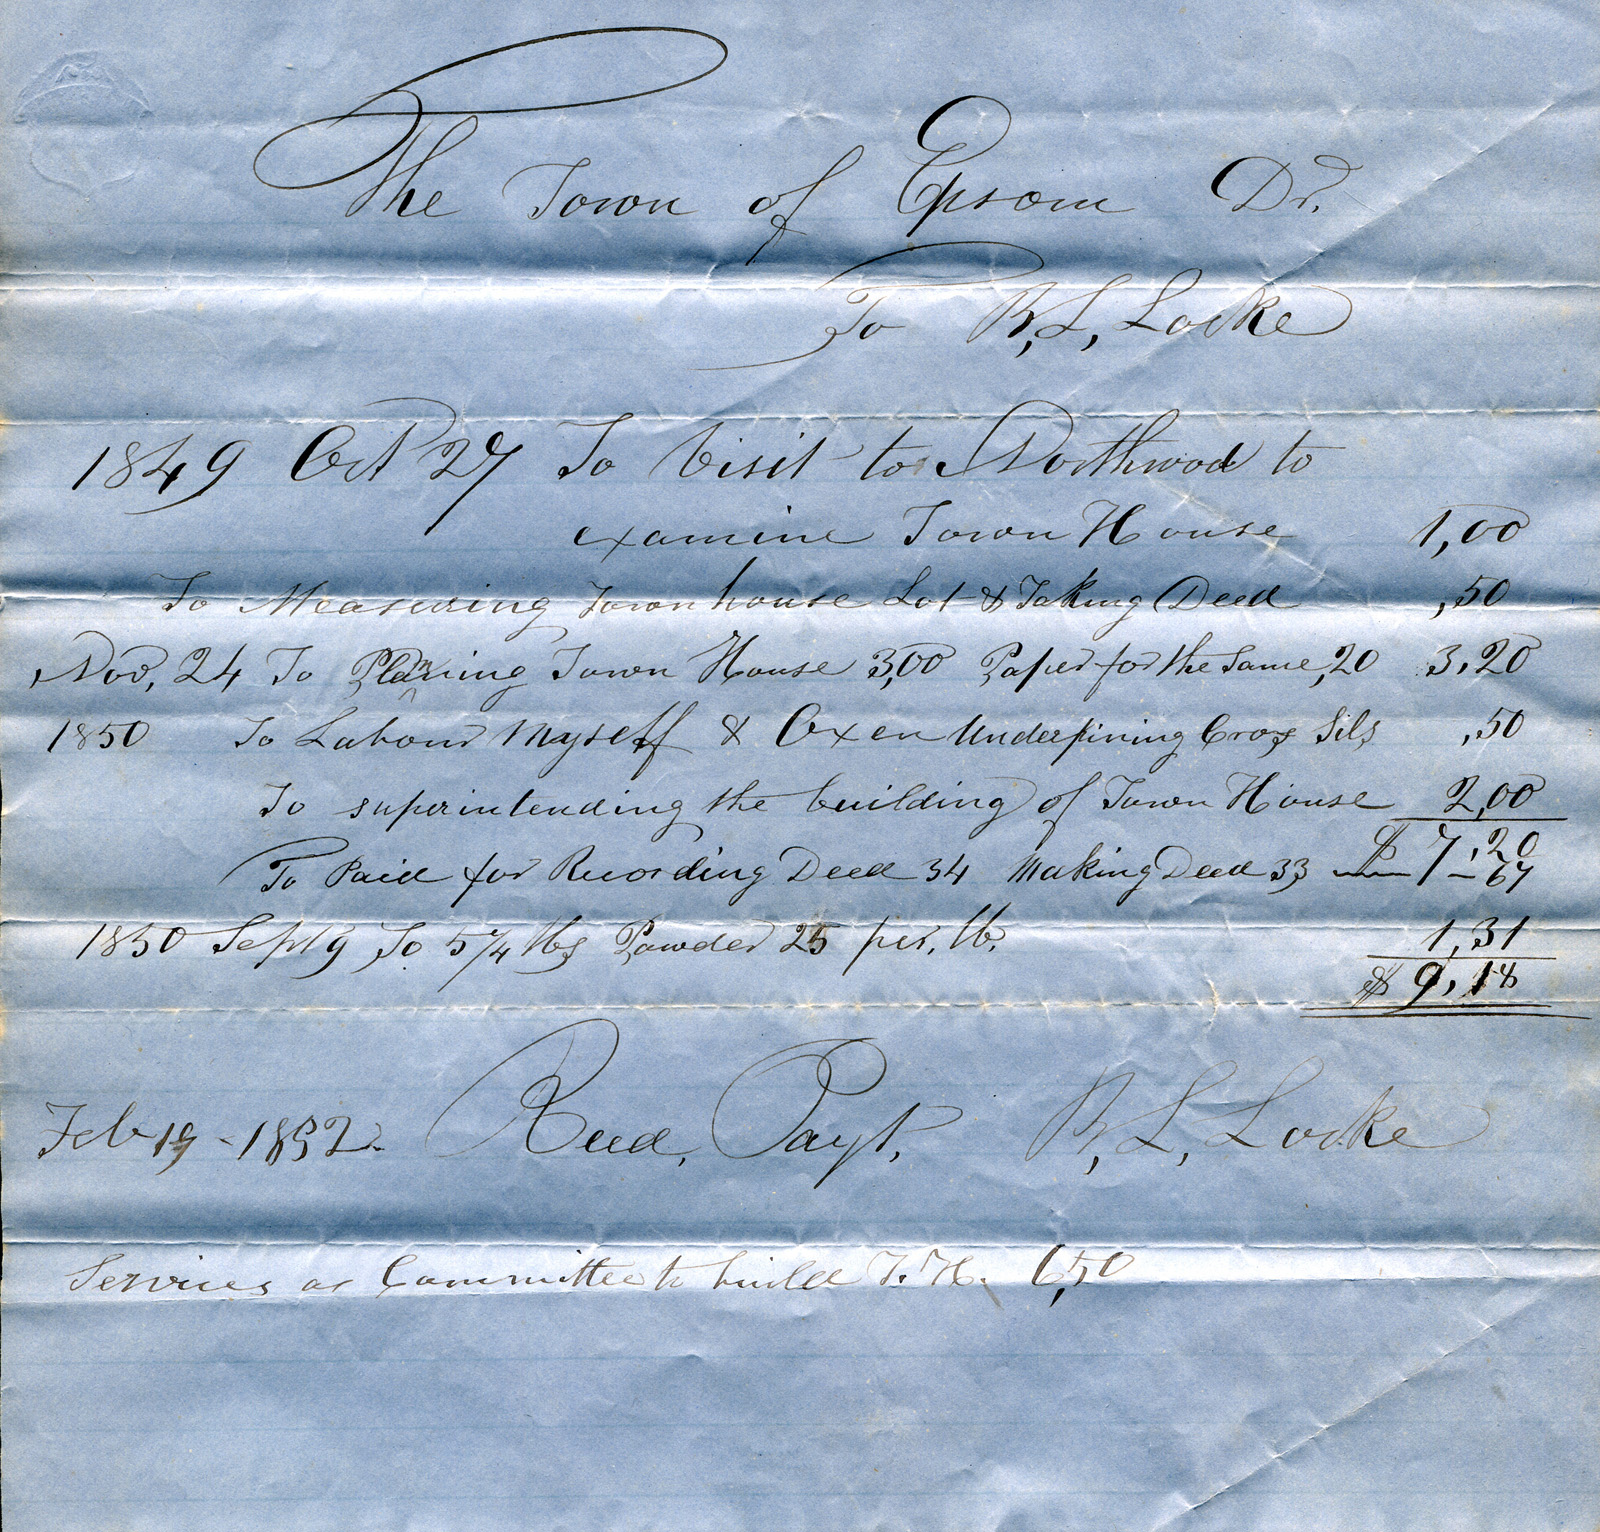 The Town of Epsom Dr.
To B, L, Locke
1849 Oct 27 To Visit to Northwood to
examine Town House 1,00
To Measuring Townhouse Lot & Taking Deed ,50
Nov, 24 To Planing Town House 3,00 Paper for the Same ,20 3,20
1850 To Labour Myself & Oxen Underpining Cros Sils ,50
To superintending the building of Town House 2,00
$ 7,20
To Paid for Recording Deed 34 Making Deed 33 — 67
1850 Sept 9 To 5 1/4 lbs Powder 25 per, lb. 1,31
$ 9,18
Feb 19 - 1852. Recd, Payt, B, L, Locke
Services as Committee to build T. H. 6,50